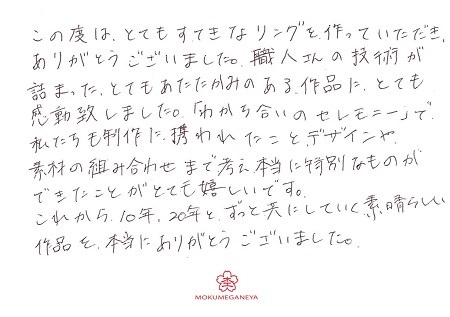 この度は、とてもすてきなリングを作っていただき、
ありがとうございました。職人さんの技術が
詰まった、とてもあたたかみのある作品に、とても
感動致しました。「わかち合いのセレモニー」で
私たちも制作に携われたこと、デザインや
素材の組み合わせまで考え本当に特別なものが
できたことがとても嬉しいです。
これから、10年、20年と、ずっと共にしていく素晴らしい
作品を、本当にありがとうございました。
MOKUMEGANEYA